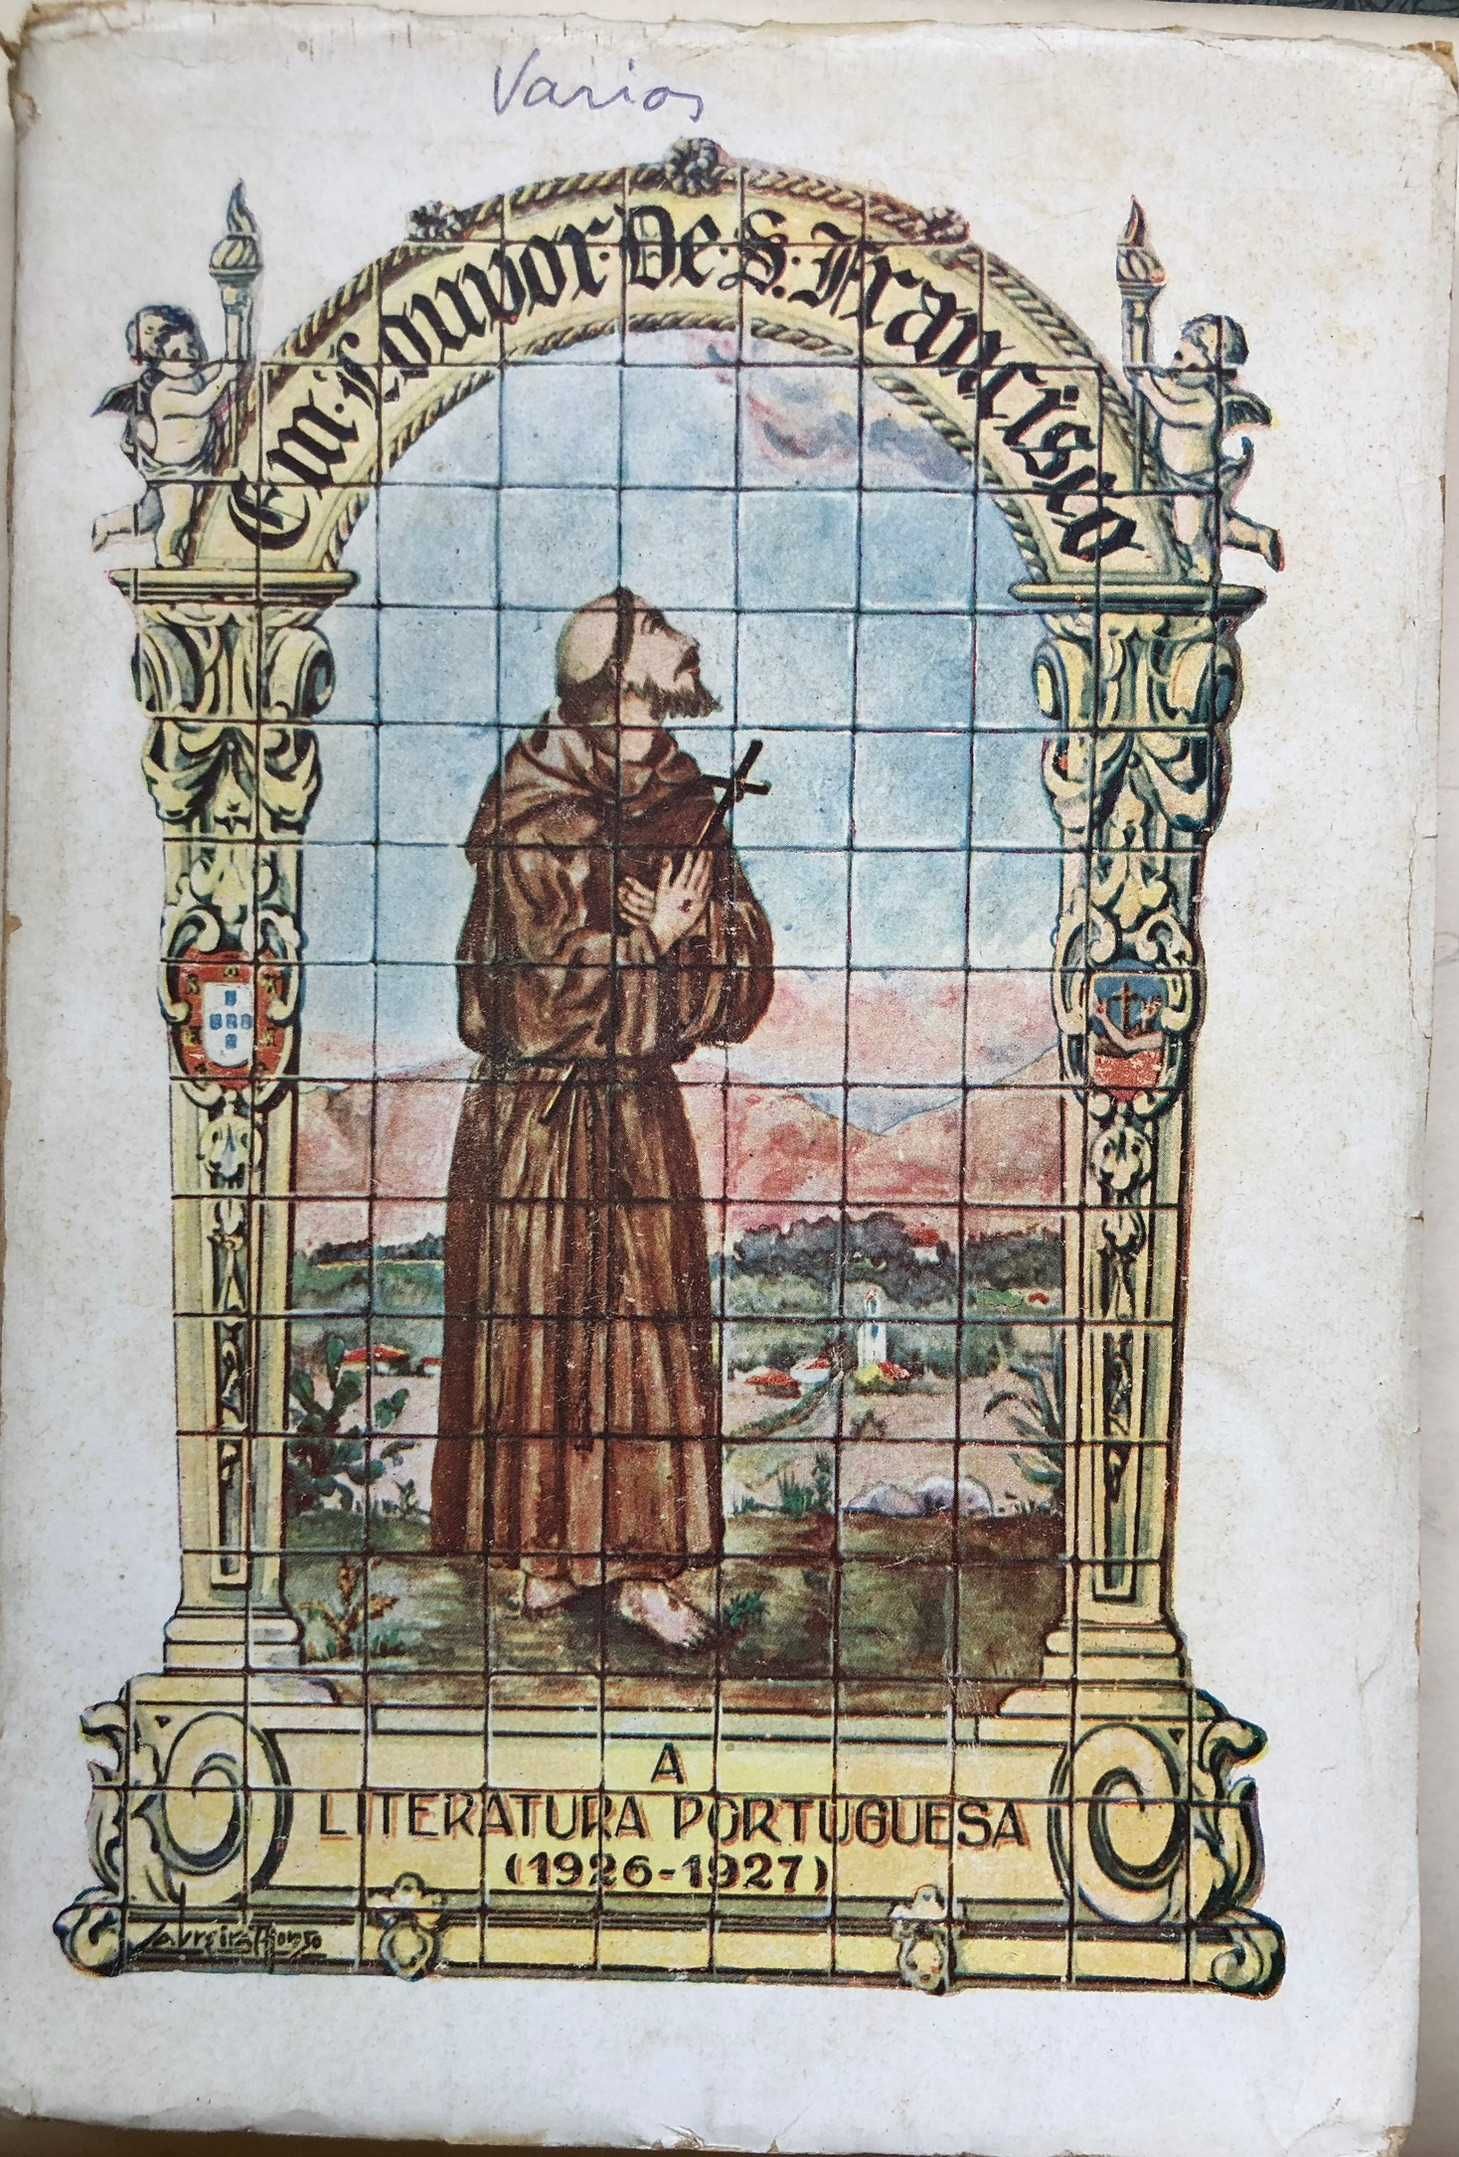 Varios
Em · Louvor · De · S. · Francisco
A
LITERATURA PORTUGUESA
(1926-1927)
Laureira Afonso